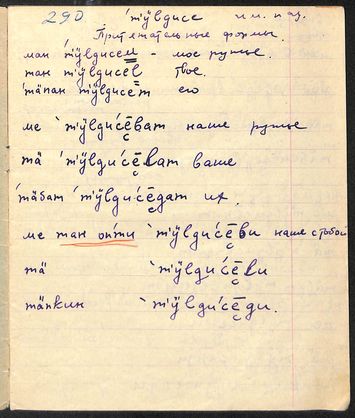 290 'тӱлдисе им. пад.
Притяжательные формы.
ман 'тӱлдисем - мое ружье.
тан тӱлдисе̄л твое.
'тӓпан тӱлдисе̄т его
ме `тӱлди'се̄ват наше ружье
тӓ 'тӱлди'се̄лат ваше
'тӓбат 'тӱлди'се̄дат их.
ме тан опти `тӱлди'се̄ви наше с тобой
тӓ `тӱлди'се̄ли
тӓпкин `тӱлди'се̄ди.